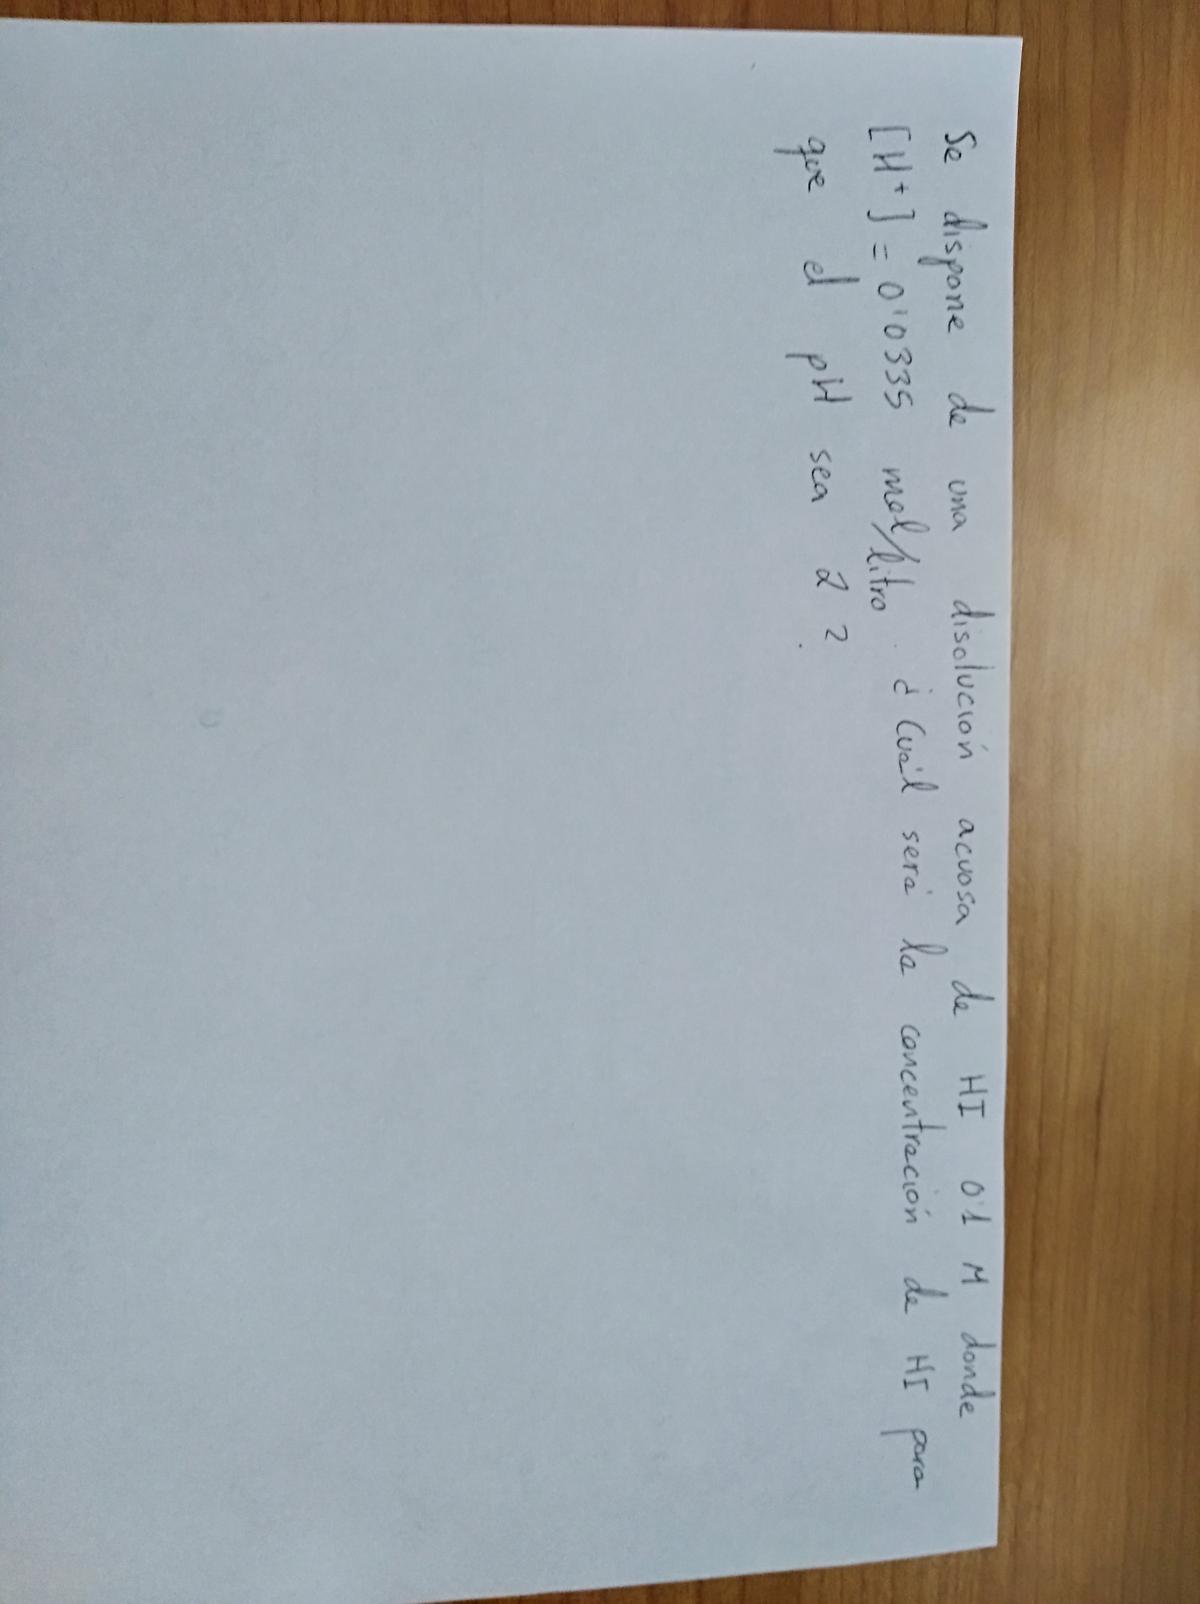 Se dispone de una disolución acuosa de HI 0'1 M donde
[H+] = 0'0335 mol/litro. ¿Cuál será la concentración de HI para
que el pH sea 2?